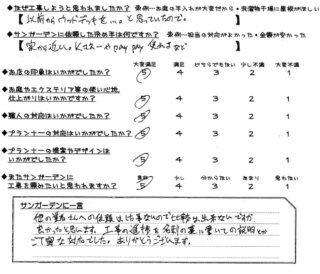 ◆なぜ工事しようと思われましたか？ 条例…お庭の手入れが大変だから・洗濯物干場に屋根がほしい
【以前からウッドデッキを…。と思っていたので。】
◆サンガーデンに依頼した決め手は何ですか？ 条例…担当の対応がよかった・金額が安かった
【家から近い。Kスターやpay pay 使えるなど】
大変満足 満足 どちらでもない 少し不満 大変不満
◆お店の印象はいかがでしたか？ 5 4 3 2 1
◆お庭やエクステリア等の使い心地、
仕上がりはいかがですか？ 5 4 3 2 1
◆職人の対応はいかがでしたか？ 5 4 3 2 1
◆プランナーの対応はいかがでしたか？ 5 4 3 2 1
◆プランナーの提案やデザインは
いかがでしたか？ 5 4 3 2 1
◆またサンガーデンに 少し 分からない あまり 思わない
工事を頼みたいと思われますか？ 5 4 3 2 1
サンガーデンに一言
他の業者さんへの依頼は工事なしので比較は出来ないですが、
良かったと思います。工事の進捗を名刺の裏に書いての説明が
ご丁寧な対応でした。ありがとうございます。